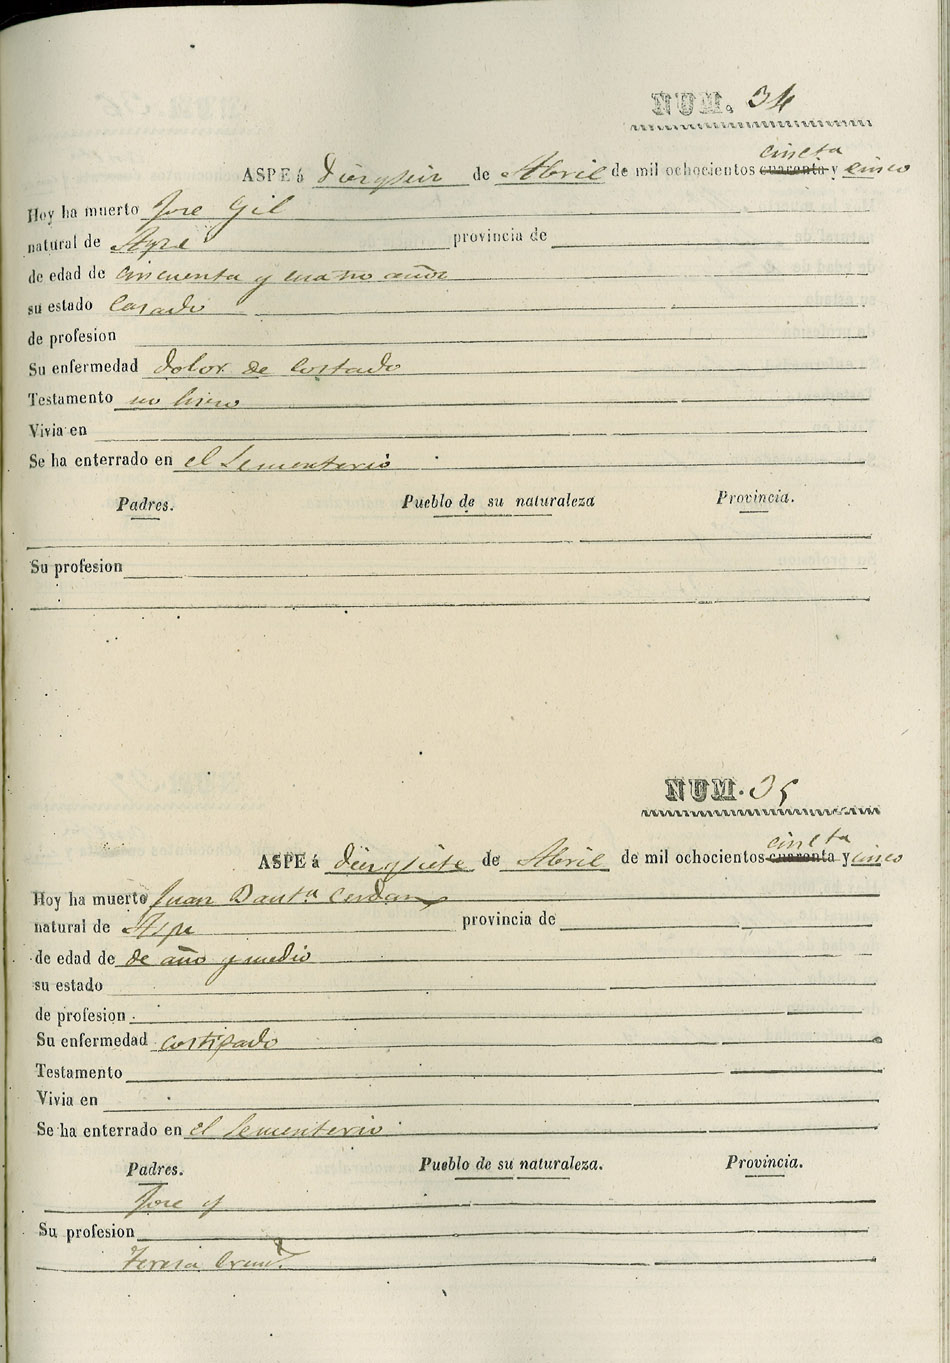 NUM. 34
ASPE á diez y seis de Abril de mil ochocientos cuarenta cincta y cinco
Hoy ha muerto Jose Gil
natural de Aspe provincia de
de edad de cincuenta y cuatro años
su estado Casado
de profesion
Su enfermedad dolor de Costado
Testamento no hiso
Vivia en
Se ha enterrado en el Sementerio
Padres. Pueblo de su naturaleza Provincia.
Su profesion
NUM. 35
ASPE á diez y siete de Abril de mil ochocientos cuarenta cincta y cinco
Hoy ha muerto Juan Bauta Cerdan
natural de Aspe provincia de
de edad de de año y medio
su estado
de profesion
Su enfermedad costipado
Testamento
Vivia en
Se ha enterrado en el Sementerio
Padres. Pueblo de su naturaleza. Provincia.
Jose y
Su profesion
Teresa